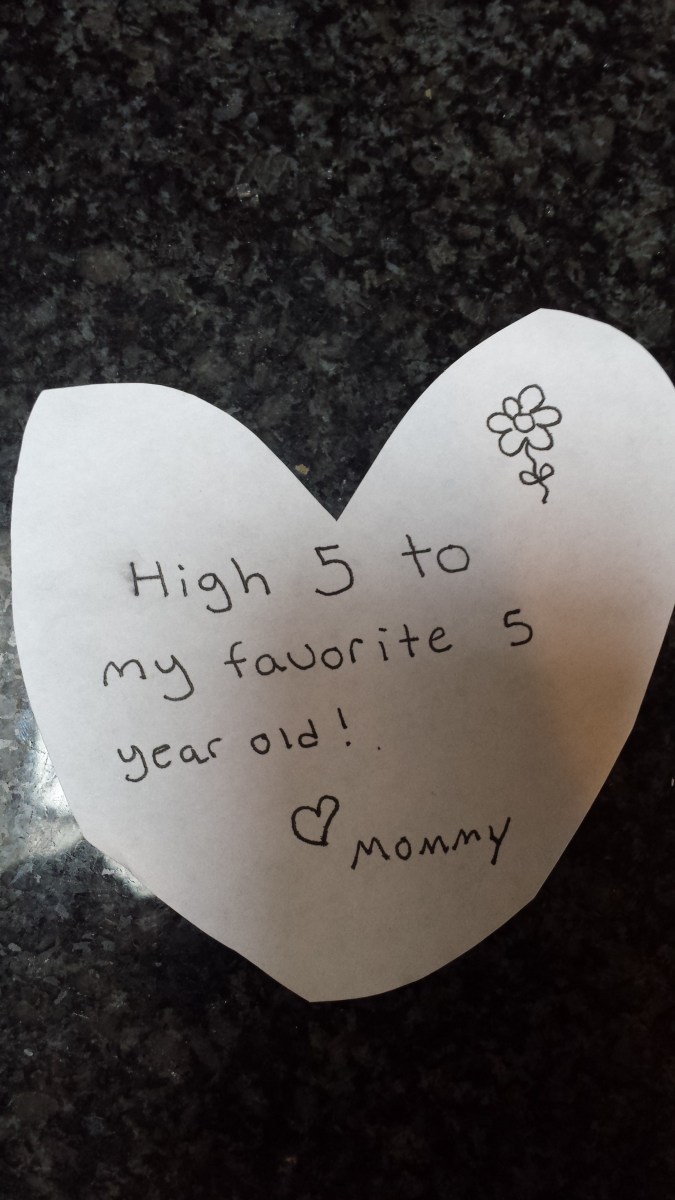 High 5 to
my favorite 5
year old!
♡ Mommy